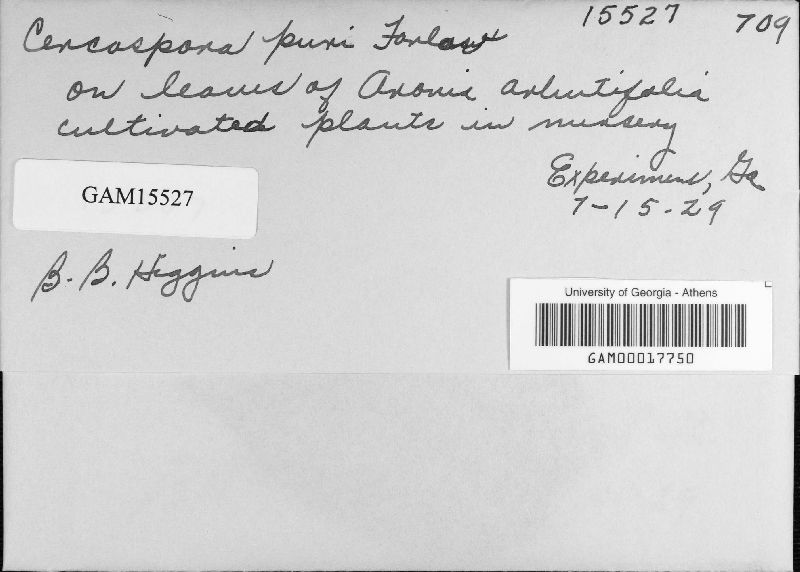 15527 709
Cercospora puri Farlow
on leaves of Aronia arbutifolia
cultivated plants in nursery
Experiment, Ga
7-15-29
GAM15527
B. B. Higgins
University of Georgia - Athens
GAM00017750